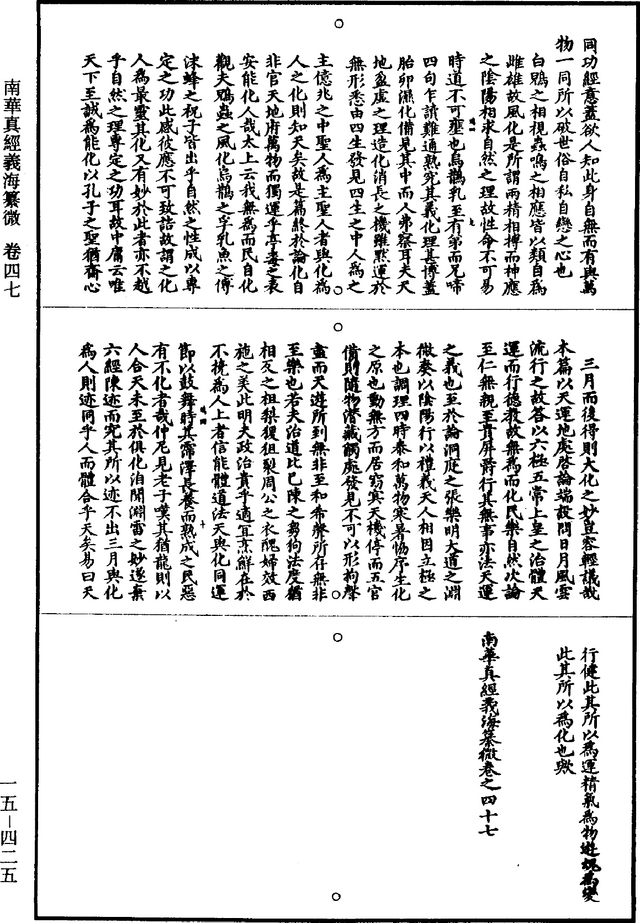 南華真經義海纂微 卷四七
一五—四二五
同功經意蓋欲人知此身自無而有與萬
物一同所以破世俗自私自戀之心也
白鶂之相視蟲鳴之相應皆以類自為
雌雄故風化是所謂兩精相搏而神應
之陰陽相求自然之理故性命不可易
時道不可壅也烏鵲乳至有弟而兄啼
四句乍讀難通熟究其義化理其博蓋
胎卵濕化備見其中而人弗察耳夫天
地盈虛之理造化消長之機雖默運於
無形悉由四生發見四生之中人為之
主億兆之中聖人為主聖人者與化為
人之化則知天矣故是篇終於論化自
非官天地府萬物而獨運乎亭毒之表
安能化人哉太上云我無為而民自化
觀夫鶂蟲之風化烏鵲之孚乳魚之傳
沫蜂之祝子皆出乎自然之性成以專
定之功此感彼應不可致詰故謂之化
人為最靈其化又有妙於此者亦不越
乎自然之理專定之功耳故中庸云唯
天下至誠為能化以孔子之聖猶齋心
三月而後得則大化之妙豈容輕議哉
本篇以天運地處啓論端設問日月風雲
流行之故荅以六極五常上皇之治體天
運而行德教故無為而化民樂自然次論
至仁無親至貴屏爵行其無事亦法天運
之義也至於論洞庭之張樂明大道之淵
微奏以陰陽行以禮義天人相因立極之
本也調理四時泰和萬物寒暑惕序生化
之原也動無方而居窈㝠天機停而五官
備則隨物潜藏觸處發見不可以形拘聲
盡而天遊所到無非至和希聲所存無非
至樂也若夫治道比已陳之芻狗法度猶
相反之柤梨猨狙裂周公之衣醜婦效西
施之美此明夫政治貴乎適宜烹鮮在於
不撓為人上者信能體道法天與化同運
節以鼓舞時其霈澤長養而熟成之民惡
有不化者哉仲尼見老子嘆其猶龍則以
人合天未至於俱化洎聞淵雷之妙遂棄
六經陳迹而究其所以迹不出三月與化
為人則迹同乎人而體合乎天矣易曰天
行健此其所以為運精氣為物遊魂為變
此其所以為化也歟
南華真經義海纂微卷之四十七